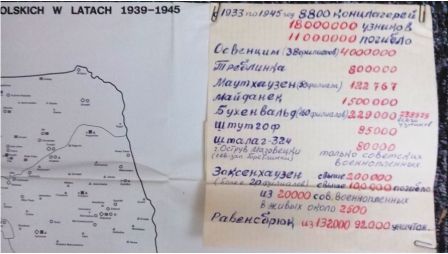 OLSKICH W LATACH 1939-1945
с 1933 по 1945 год 8800 концлагерей
18000000 узников
11000000 погибло
Освенцим (38 филиалов) 4000000
Треблинка 800000
Маутхаузен 122767
Майданек 1500000
Бухенвальд 229000
Штутгоф 85000
Шталаг-324 80000
только советских
военнопленных
Заксенхаузен свыше 200000
(более 20 филиалов) свыше 100000 погибло
из 20000 сов. военнопленных
в живых около 2500
Равенсбрюк из 132000 92000